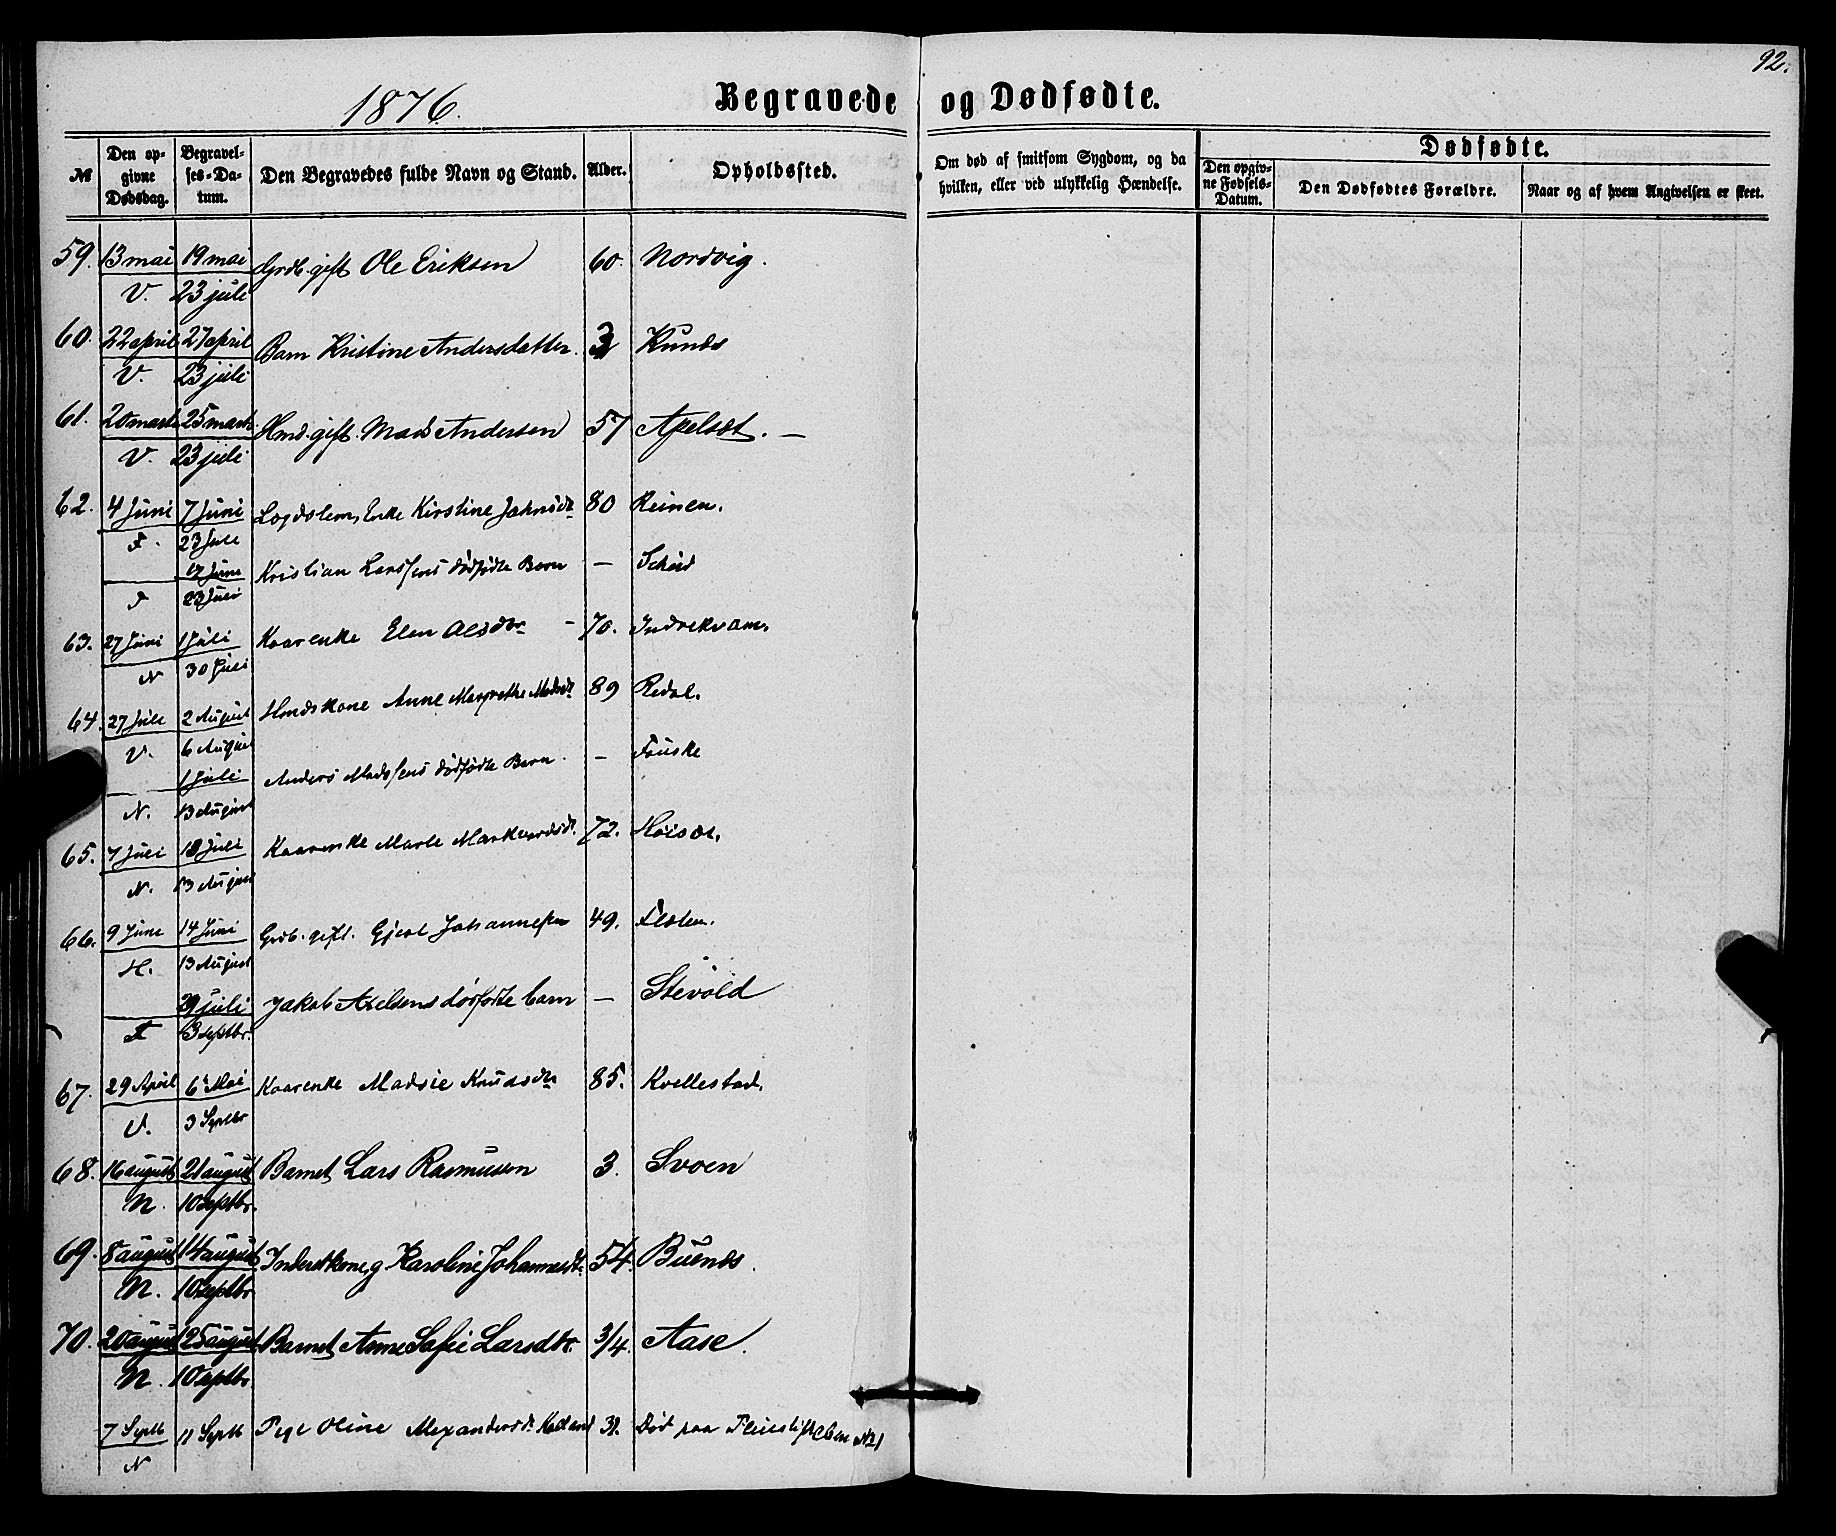 92.
1876.
Begravede og Dødfødte.
№
Den op-
givne
Dødsdag.
Begravel-
ses-Da-
tum.
Den Begravedes fulde Navn og Stand.
Alder.
Opholdssted.
Om død af smitsom Sygdom, og da
hvilken, eller ved ulykkelig Hændelse.
Dødfødte.
Den opgiv-
ne Fødsels-
Datum.
Den Dødfødtes Forældre.
Naar og af hvem Angivelsen er skeet.
59. 13 mai 19 mai Grdb. gift Ole Eriksen 60. Nordvig.
V. 23 juli
60. 22 april 27 april Barn Kristine Andersdatter. 3 Kunds
V. 23 juli
61. 20 marts 25 marts Hmd. gift. Mads Andersen 57 Apelset. —
V. 23 juli
62. 4 Juni 7 Juni Logdslem, Enke Kirstine Jahnsdr 80 Reinen.
F. 23 Juli
17 Juni Kristian Larssens dødfødte Barn — Scheid
F 23 Juli
63. 27 Juni 1 Juli Kaarenke Elen Olsdtr — 70. Indrekvam.
N 30 Juli
64. 27 Juli 2 August Hmdskone Anne Margrethe Madsdr 89 Redal.
V. 6 August
1 Juli Anders Madssens dødfødte Barn. — Fouske
N. 13 August
65. 7 Juli 10 Juli Kaarenke Marte Markvardsdr. 72. Hoisæt.
N. 13 August
66. 9 Juni 14 Juni Grdb. gift. Gjert Johannessen 49. Flaten.
H. 13 August
29 juli Jakob Axelsens dødfødte barn — Stevold
F 3 septbr.
67. 29 April 6 Mai Kaarenke Madsie Knudsdtr 85. Kvellestad.
V. 3 Septbr
68. 16 august 21 august Barnet Lars Rasmussen 3. Svoen
N. 10 septbr.
69. 8 august 14 august Inderstkone, g Karoline Johannesdtr. 54. Buends.
N. 10 septbr
70. 20 august 25 august Barnet Anne Safie Larsdtr. 3/4. Aase.
N. 10 septbr
7 Septb 11 Septb Pige Oline Alexandersdr 31. Død paa Pleiestiftelsen № 1
N